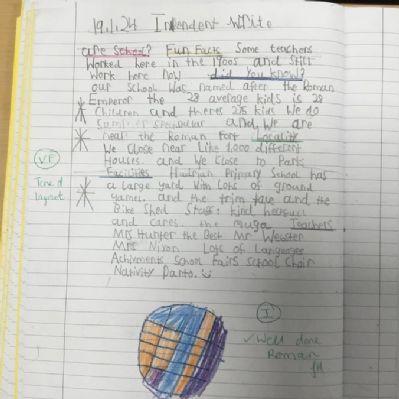 19.1.24 Independent Write
Our School? Fun Facts Some teachers
Worked here in the 1900s and still
Work here now did you know?
our School was named after the Roman
Emperor the 28 average kids is 28
Children and theres 275 kids We do
and We are
near the Roman Fort Locality
We Close near Like 1,000 different
Houses. and We close to Park
Facilities Hadrian Primary School has
a large yard With Lots of ground
games. and the trim and the
Bike Shed Staff: kind
and cares. the muga Teachers
Mrs Hunter the Best Mr Webster
Mrs Nixon Lots of Languages
School Fairs School Choir
Nativity Panto.
VF
Tone &
layout
I
Well done
Roman